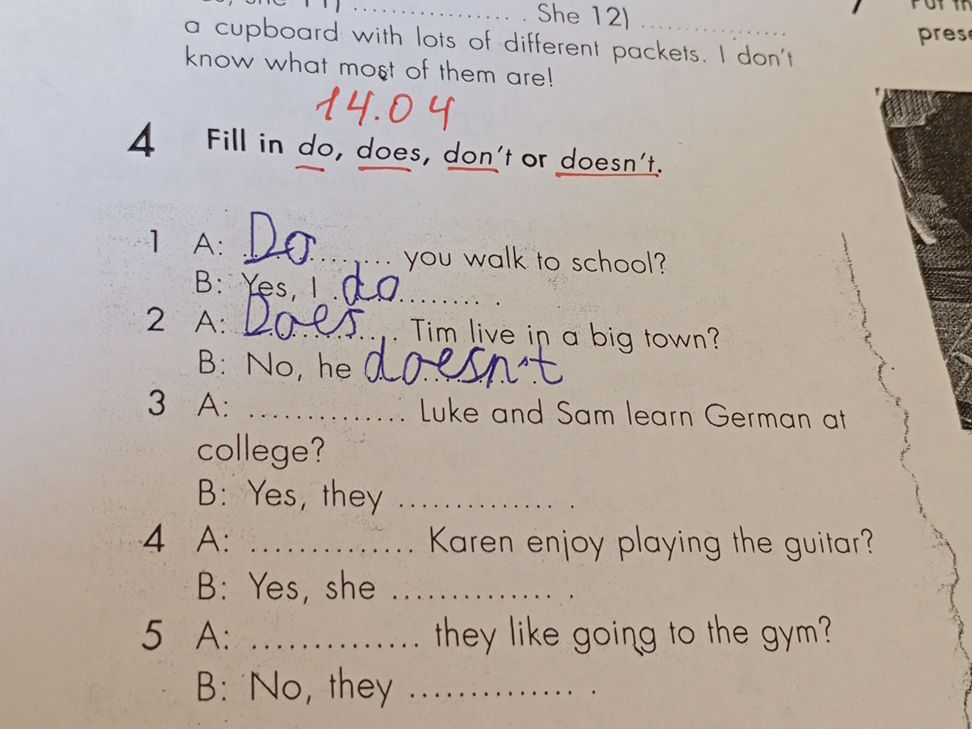 She 12) ....................
a cupboard with lots of different packets. I don't
know what most of them are!
14.04
4 Fill in do, does, don't or doesn't.
1 A: Do ........ you walk to school?
B: Yes, I do ......... .
2 A: Does .... Tim live in a big town?
B: No, he doesn't
3 A: .............. Luke and Sam learn German at
college?
B: Yes, they .............. .
4 A: .............. Karen enjoy playing the guitar?
B: Yes, she .............. .
5 A: .............. they like going to the gym?
B: No, they .............. .